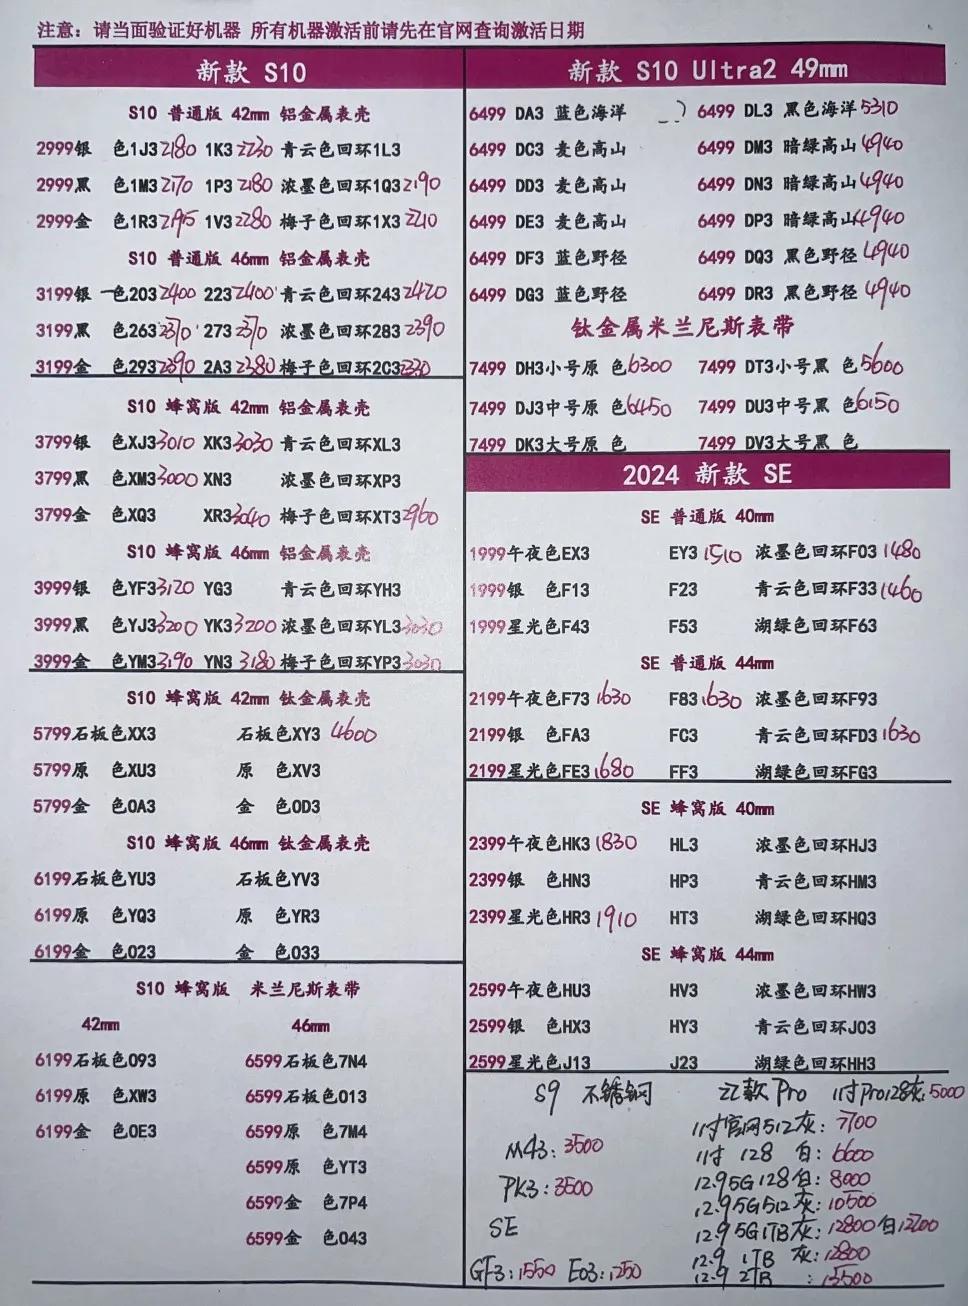 注意: 请当面验证好机器 所有机器激活前请先在官网查询激活日期
新款 S10
S10 普通版 42mm 铝金属表壳
2999银 色1J3 2180 1K3 2230 青云色回环1L3
2999黑 色1M3 2170 1P3 2180 浓墨色回环1Q3 2190
2999金 色1R3 2195 1V3 2280 梅子色回环1X3 2210
S10 普通版 46mm 铝金属表壳
3199银 色203 2400 223 2400 青云色回环243 2420
3199黑 色263 2370 273 2370 浓墨色回环283 2390
3199金 色293 2390 2A3 2380 梅子色回环2C3 2330
S10 蜂窝版 42mm 铝金属表壳
3799银 色XJ3 3010 XK3 3030 青云色回环XL3
3799黑 色XM3 3000 XN3 浓墨色回环XP3
3799金 色XQ3 XR3 3040 梅子色回环XT3 2960
S10 蜂窝版 46mm 铝金属表壳
3999银 色YF3 3120 YG3 青云色回环YH3
3999黑 色YJ3 3200 YK3 3200 浓墨色回环YL3 3030
3999金 色YM3 3190 YN3 3180 梅子色回环YP3 3030
S10 蜂窝版 42mm 钛金属表壳
5799石板色XX3 石板色XY3 4600
5799原 色XU3 原 色XV3
5799金 色0A3 金 色0D3
S10 蜂窝版 46mm 钛金属表壳
6199石板色YU3 石板色YV3
6199原 色YQ3 原 色YR3
6199金 色023 金 色033
S10 蜂窝版 米兰尼斯表带
42mm 46mm
6199石板色093 6599石板色7N4
6199原 色XW3 6599石板色013
6199金 色0E3 6599原 色7M4
6599原 色YT3
6599金 色7P4
6599金 色043
新款 S10 Ultra2 49mm
6499 DA3 蓝色海洋 6499 DL3 黑色海洋 5310
6499 DC3 麦色高山 6499 DM3 暗绿高山 4940
6499 DD3 麦色高山 6499 DN3 暗绿高山 4940
6499 DE3 麦色高山 6499 DP3 暗绿高山 4940
6499 DF3 蓝色野径 6499 DQ3 黑色野径 4940
6499 DG3 蓝色野径 6499 DR3 黑色野径 4940
钛金属米兰尼斯表带
7499 DH3小号原 色6300 7499 DT3小号黑 色5600
7499 DJ3中号原 色6450 7499 DU3中号黑 色6150
7499 DK3大号原 色 7499 DV3大号黑 色
2024 新款 SE
SE 普通版 40mm
1999午夜色EX3 EY3 1510 浓墨色回环F03 1480
1999银 色F13 F23 青云色回环F33 1460
1999星光色F43 F53 湖绿色回环F63
SE 普通版 44mm
2199午夜色F73 1630 F83 1630 浓墨色回环F93
2199银 色FA3 FC3 青云色回环FD3 1630
2199星光色FE3 1680 FF3 湖绿色回环FG3
SE 蜂窝版 40mm
2399午夜色HK3 1830 HL3 浓墨色回环HJ3
2399银 色HN3 HP3 青云色回环HM3
2399星光色HR3 1910 HT3 湖绿色回环HQ3
SE 蜂窝版 44mm
2599午夜色HU3 HV3 浓墨色回环HW3
2599银 色HX3 HY3 青云色回环J03
2599星光色J13 J23 湖绿色回环HH3
S9 不锈钢
M43: 3500
PK3: 3500
SE
GF3: 1550 E03: 1250
22款 Pro 11寸Pro128灰: 5000
11寸官网512灰: 7700
11寸 128 白: 6600
12.9 5G 128白: 8000
12.9 5G 512灰: 10500
12.9 5G 1TB灰: 12800 白12700
12.9 1TB 灰: 12800
12.9 2TB : 13500